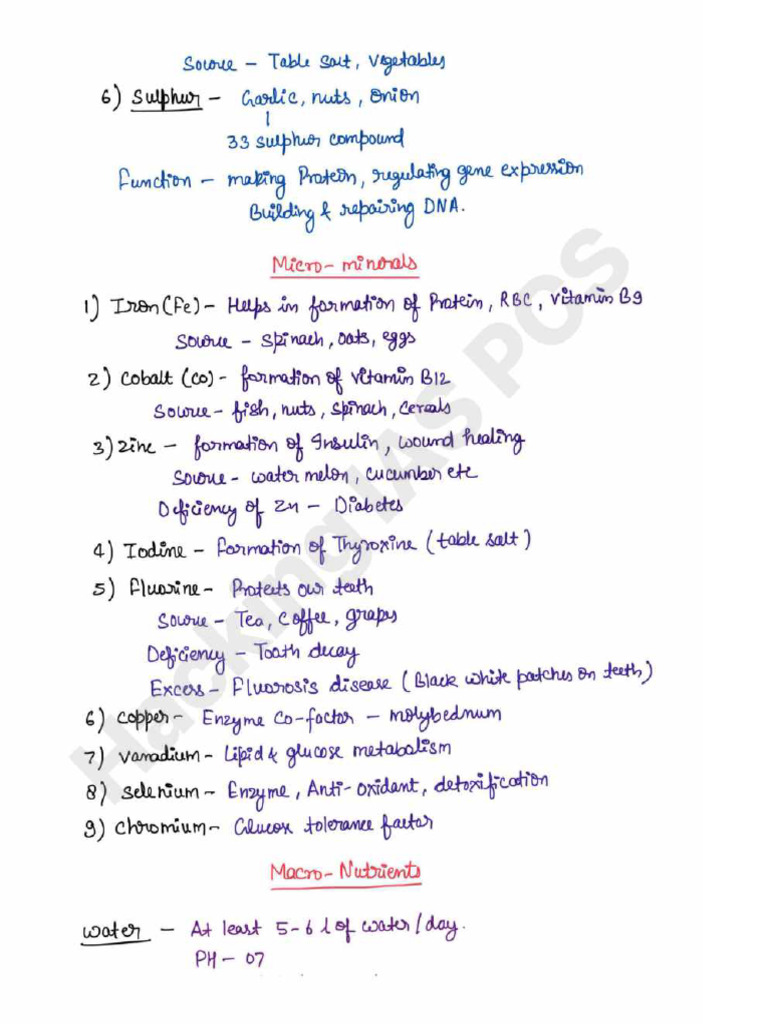 Source – Table Salt, Vegetables
6) Sulphur – Garlic, nuts, onion
33 sulphur compound
Function – making Protein, regulating gene expression
Building & repairing DNA.
Micro-minerals
1) Iron (Fe) – Helps in formation of Protein, RBC, Vitamin B9
Source – Spinach, oats, eggs
2) Cobalt (Co) – formation of Vitamin B12
Source – fish, nuts, spinach, cereals
3) Zinc – formation of Insulin, wound healing
Source – water melon, cucumber etc
Deficiency of Zn – Diabetes
4) Iodine – Formation of Thyroxine (table salt)
5) Fluorine – Protects our teeth
Source – Tea, Coffee, grapes
Deficiency – Tooth decay
Excess – Fluorosis disease (Black white patches on teeth)
6) Copper – Enzyme Co-factor – molybednum
7) Vanadium – Lipid & glucose metabolism
8) Selenium – Enzyme, Anti-oxidant, detoxification
9) Chromium – Glucox tolerance factor
Macro-Nutrients
Water – At least 5-6 l of water/day.
PH – 07
Hacking IAS PCS